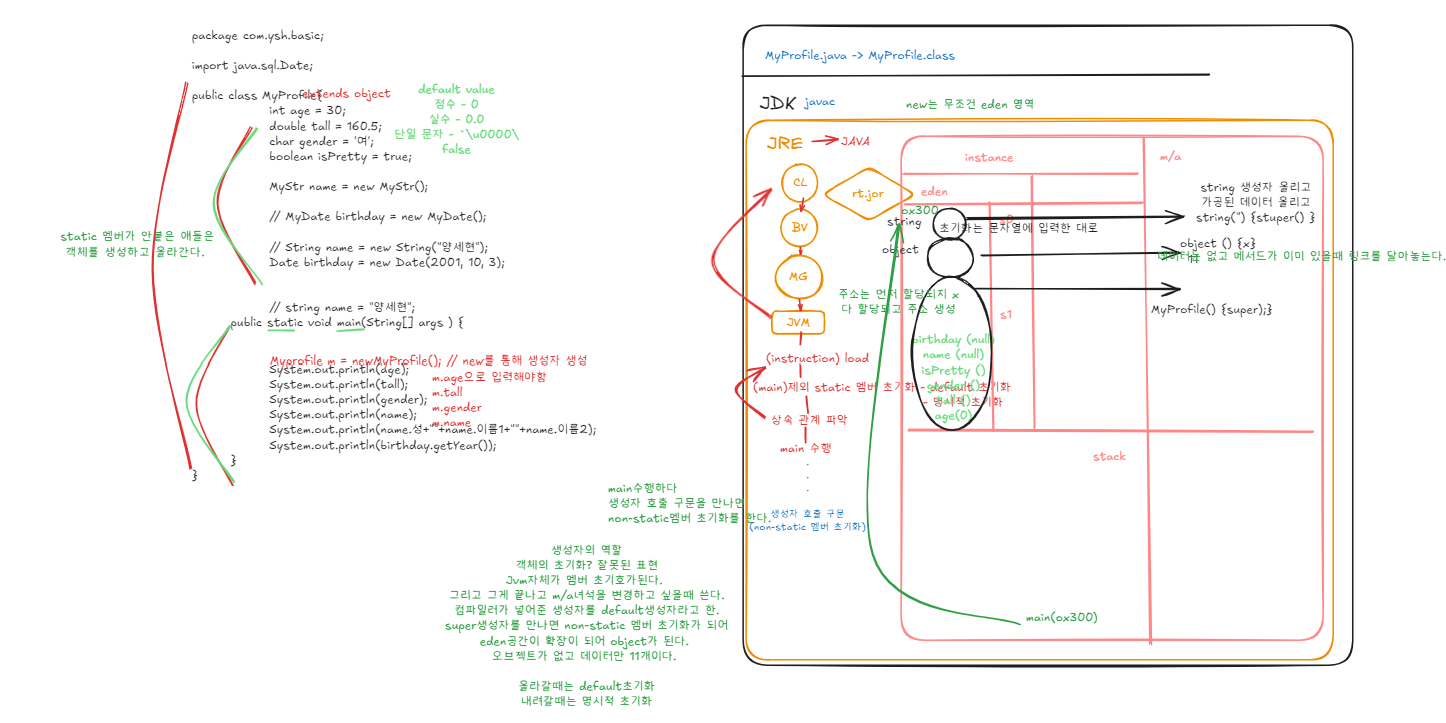 package com.ysh.basic;
import java.sql.Date;
public class MyProfile{
extends object
int age = 30;
double tall = 160.5;
char gender = '여';
boolean isPretty = true;
MyStr name = new MyStr();
// MyDate birthday = new MyDate();
// String name = new String("양세현");
Date birthday = new Date(2001, 10, 3);
// string name = "양세현";
public static void main(String[] args ) {
Myprofile m = newMyProfile(); // new를 통해 생성자 생성
System.out.println(age);
System.out.println(tall);
System.out.println(gender);
System.out.println(name);
System.out.println(name.성+""+name.이름1+""+name.이름2);
System.out.println(birthday.getYear());
}
}
m.age으로 입력해야함
m.tall
m.gender
m.name
default value
정수 - 0
실수 - 0.0
단일 문자 - `\u0000\
false
static 멤버가 안붙은 애들은
객체를 생성하고 올라간다.
main수행하다
생성자 호출 구문을 만나면
non-static멤버 초기화를 한다.
생성자의 역할
객체의 초기화? 잘못된 표현
Jvm자체가 멤버 초기호가된다.
그리고 그게 끝나고 m/a녀석을 변경하고 싶을때 쓴다.
컴파일러가 넣어준 생성자를 default생성자라고 한.
super생성자를 만나면 non-static 멤버 초기화가 되어
eden공간이 확장이 되어 object가 된다.
오브젝트가 없고 데이터만 11개이다.
올라갈때는 default초기화
내려갈때는 명시적 초기화
MyProfile.java -> MyProfile.class
JDK
javac
new는 무조건 eden 영역
JRE
JAVA
CL
BV
MG
JVM
rt.jor
(instruction) load
(main)제외 static 멤버 초기화 - default 초기화
- 명시적 초기화
상속 관계 파악
main 수행
.
.
.
생성자 호출 구문
(non-static 멤버 초기화)
instance
m/a
eden
s0
s1
stack
ox300
string
초기화는 문자열에 입력한 대로
object
주소는 먼저 할당되지 x
다 할당되고 주소 생성
birthday (null)
name (null)
isPretty ()
age(0)
string 생성자 올리고
가공된 데이터 올리고
string('') {stuper() }
object () {x}
데이터는 없고 메서드가 이미 있을때 링크를 달아놓는다.
MyProfile() {super();}
main(ox300)